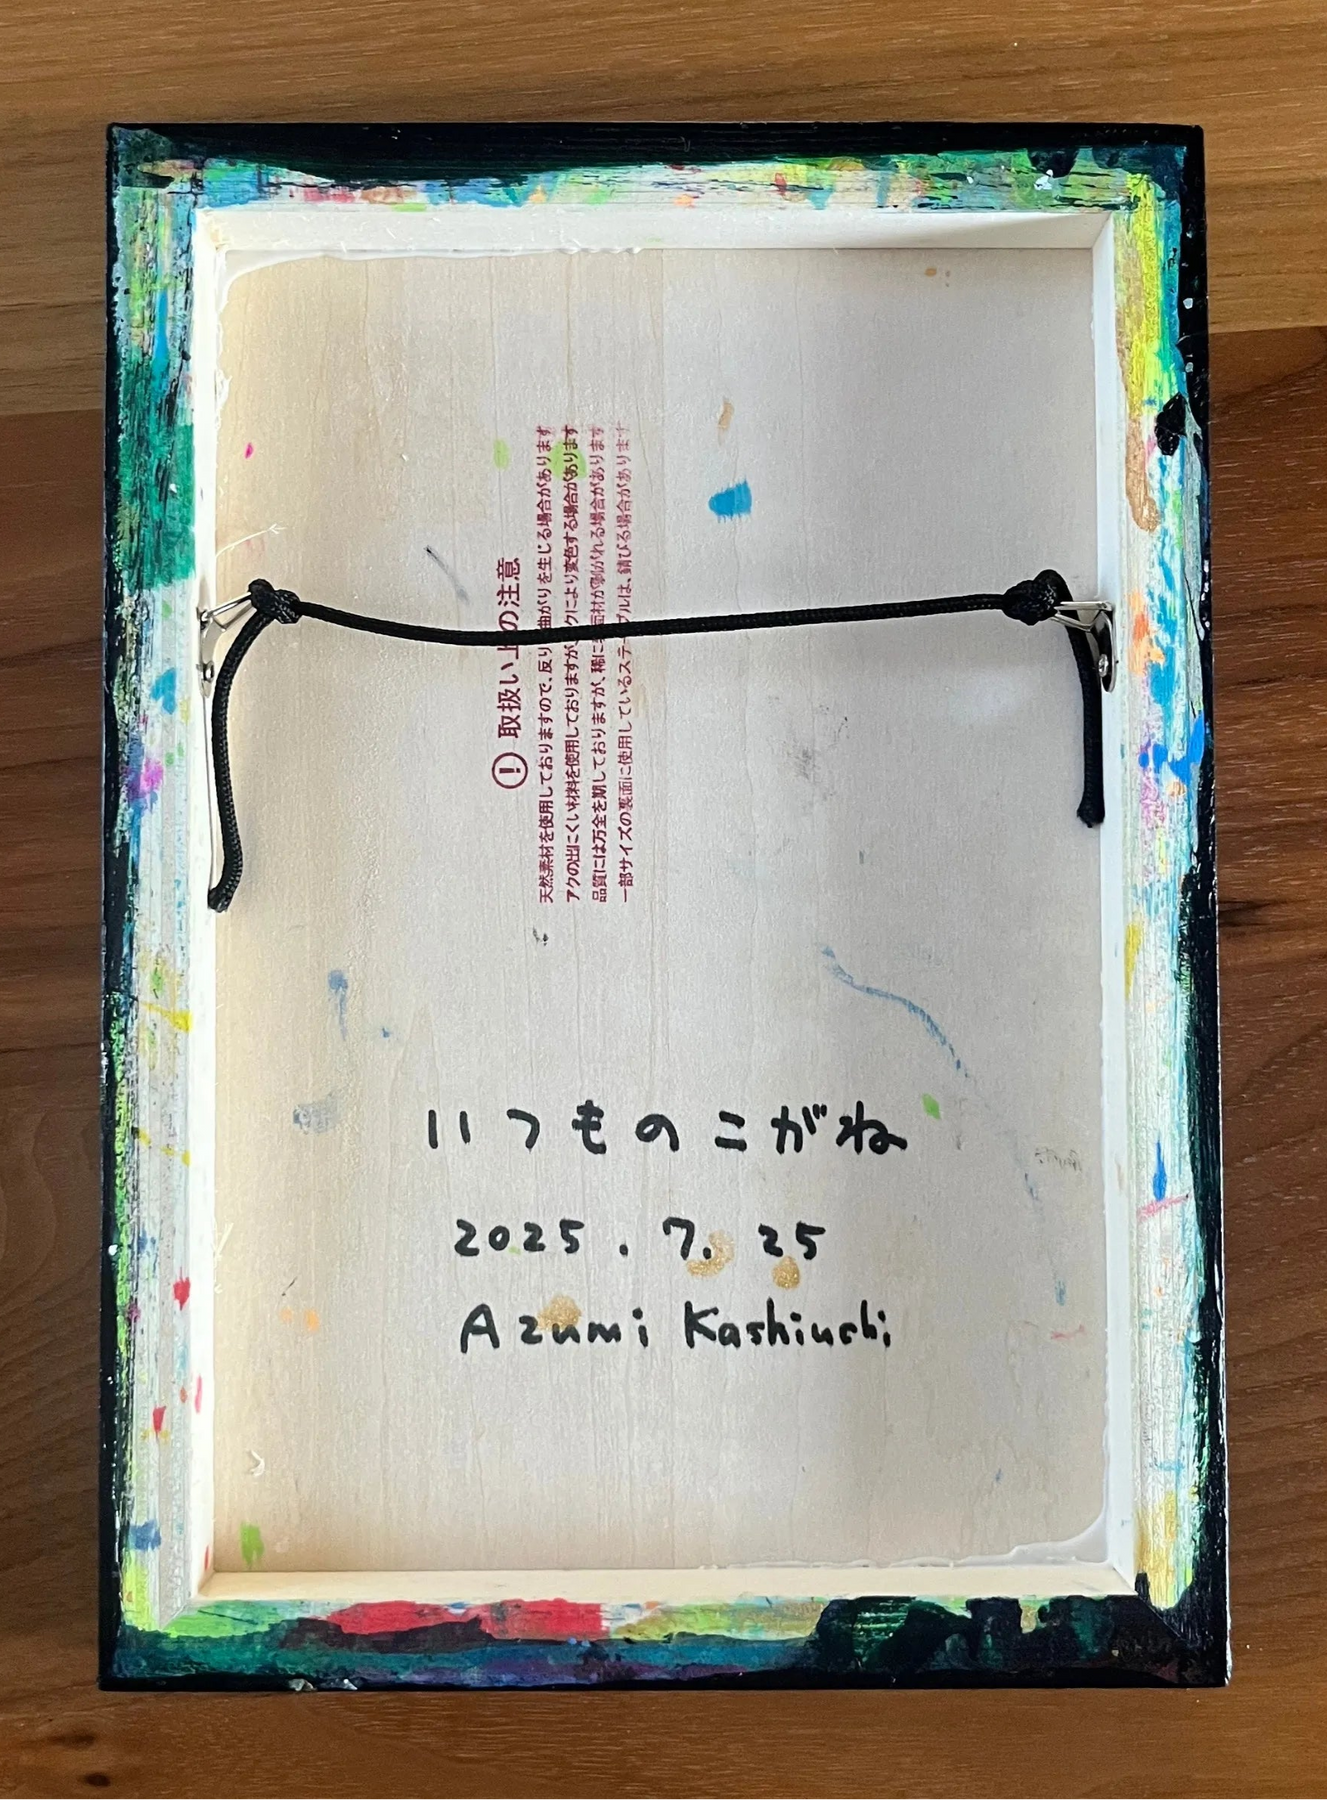 ! 取扱い上の注意
天然素材を使用しておりますので、反り 曲がりを生じる場合があります
アクの出にくい材料を使用しておりますが、 クにより変色する場合があります
品質には万全を期しておりますが、稀に 面材が剥がれる場合があります
一部サイズの裏面に使用しているステ プルは、錆びる場合があります
いつものこがね
2025.7.25
Azumi Kashiuchi